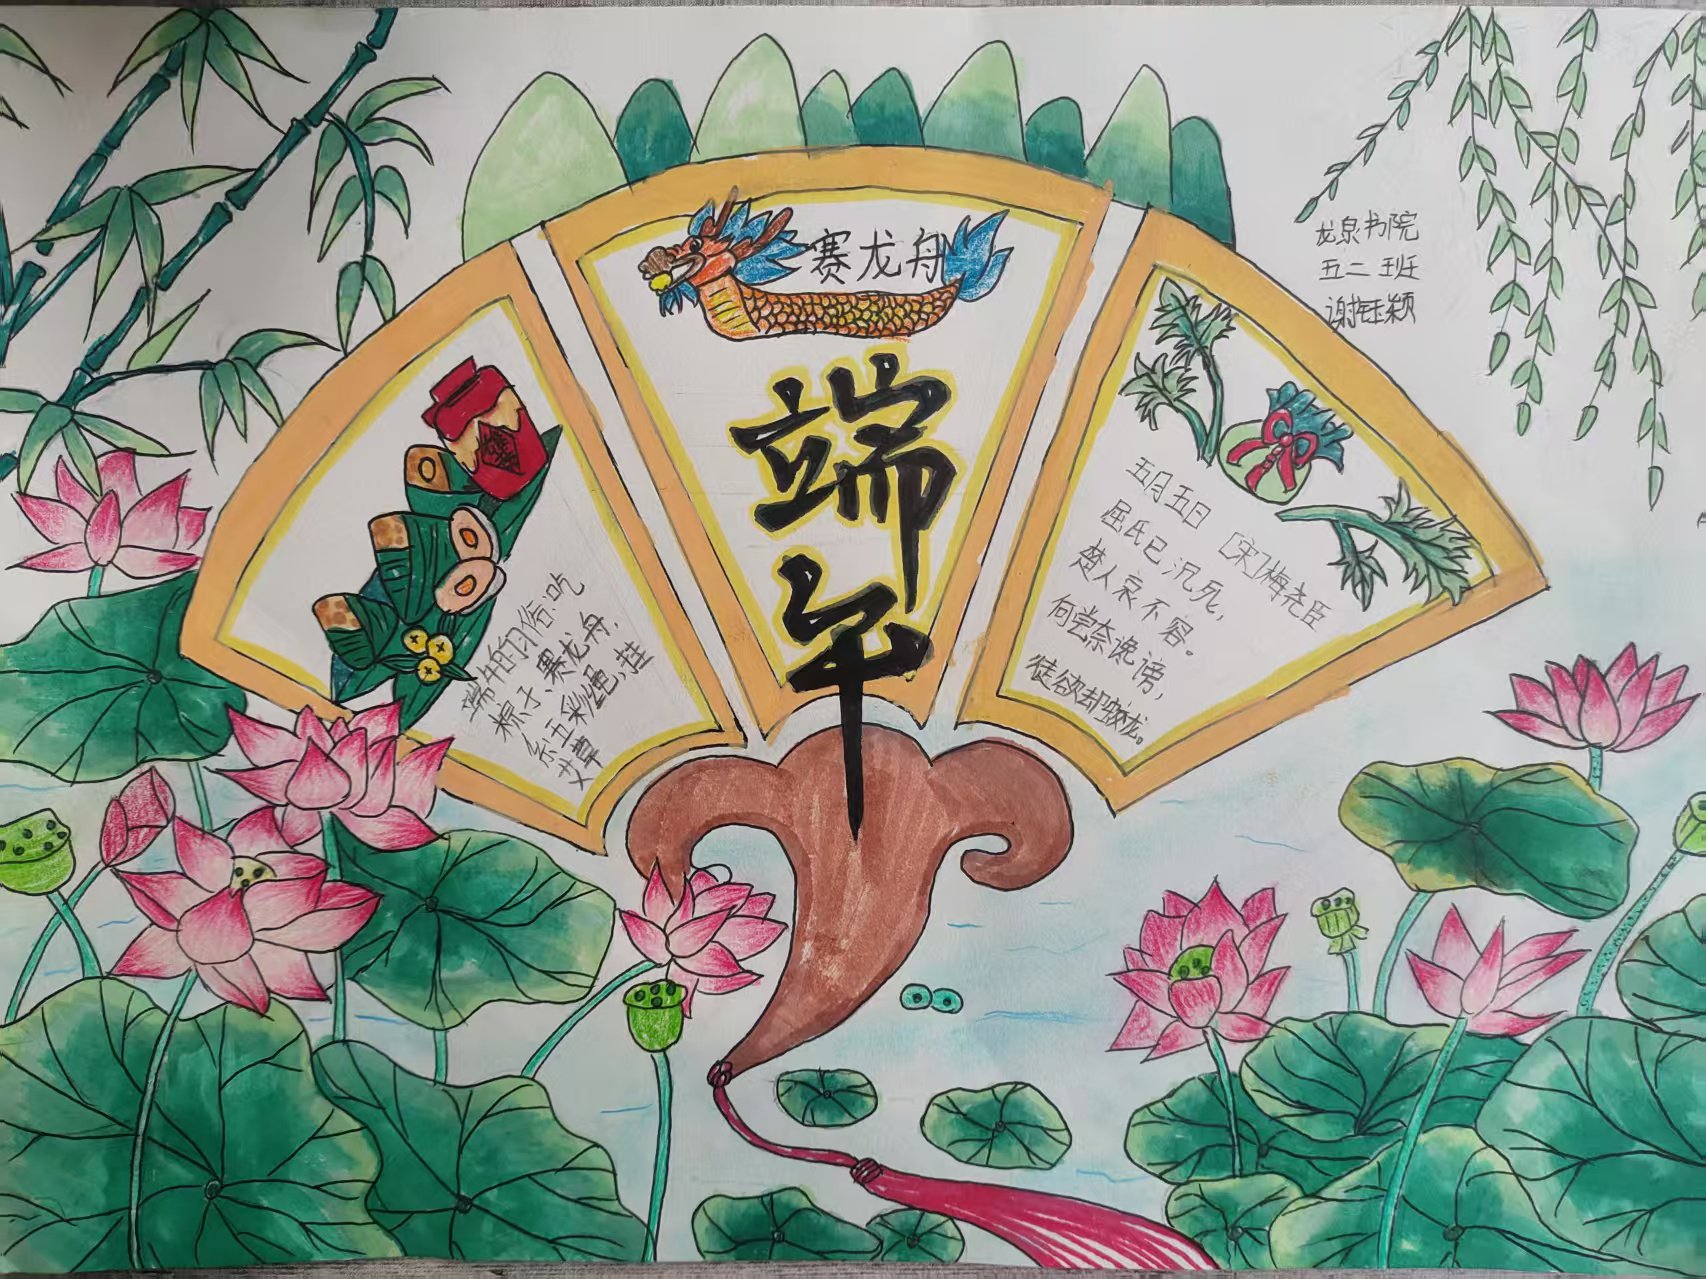 赛龙舟
端午
端午的习俗:吃
粽子、赛龙舟、
系五彩绳、挂
艾草
五月五日 [宋]梅尧臣
屈氏已沉死,
楚人哀不容。
何尝奈谗谤,
徒欲却蛟龙。
龙泉书院
五二班
谢钰颖